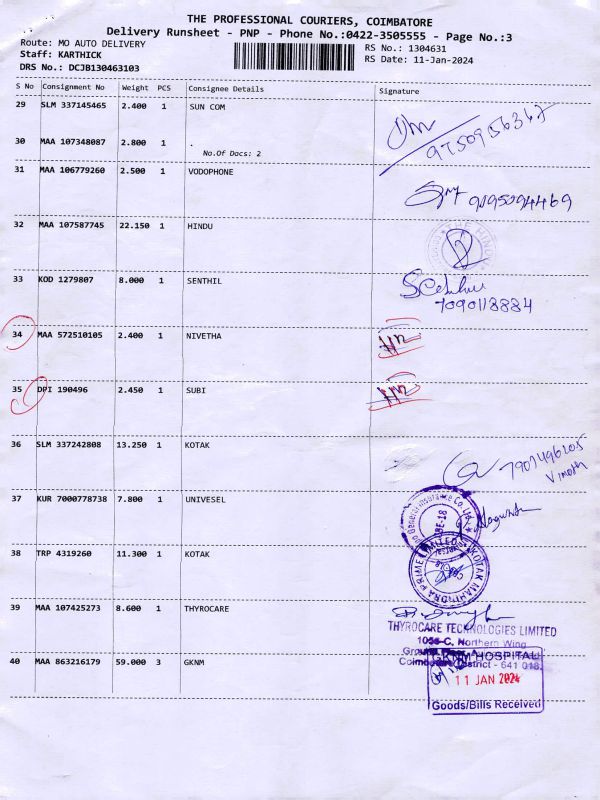 THE PROFESSIONAL COURIERS, COIMBATORE
Delivery Runsheet - PNP - Phone No.:0422-3505555 - Page No.:3
Route: MO AUTO DELIVERY RS No.: 1304631
Staff: KARTHICK RS Date: 11-Jan-2024
DRS No.: DCJB130463103
S No Consignment No Weight PCS Consignee Details Signature
29 SLM 337145465 2.400 1 SUN COM
30 MAA 107348087 2.800 1 .
No.Of Docs: 2
31 MAA 106779260 2.500 1 VODOPHONE
32 MAA 107587745 22.150 1 HINDU
33 KOD 1279807 8.000 1 SENTHIL
7090118884
34 MAA 572510105 2.400 1 NIVETHA
35 DPI 190496 2.450 1 SUBI
36 SLM 337242808 13.250 1 KOTAK
Vinoth
37 KUR 7000778738 7.800 1 UNIVESEL
General Insurance Co. Ltd.
38 TRP 4319260 11.300 1 KOTAK
KOTAK MAHINDRA PRIME LIMITED
39 MAA 107425273 8.600 1 THYROCARE
THYROCARE TECHNOLOGIES LIMITED
1056-C, Northern Wing
District - 641 018.
40 MAA 863216179 59.000 3 GKNM
GKNM HOSPITAL
11 JAN 2024
Goods/Bills Received